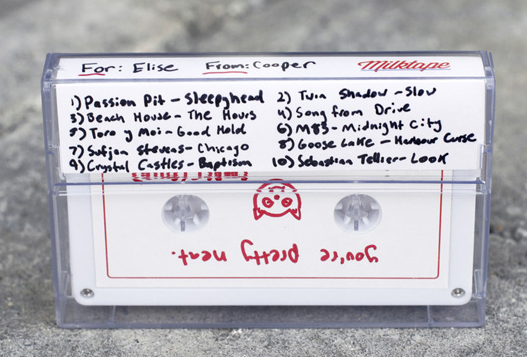 For: Elise From: Cooper Milktape
1) Passion Pit - Sleepyhead 2) Twin Shadow - Slow
3) Beach House - The Hours 4) Song from Drive
5) Toro y Moi - Good Hold 6) M83 - Midnight City
7) Sufjan Stevens - Chicago 8) Goose Lake - Harbour Curse
9) Crystal Castles - Baptism 10) Sebastian Tellier - Look
you're pretty neat.